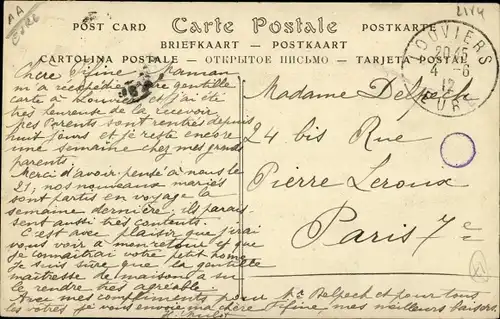 AA
EURE
2144
POST CARD
Carte Postale
POSTKARTE
BRIEFKAART - POSTKAART
CARTOLINA POSTALE - ОТКРЫТОЕ ПИСЬМО - TARJETA POSTAL
LOUVIERS
20 45
4 - 6
12
EURE
Chère Fifine, Maman
m'a réexpédié votre gentille
carte à Louviers et j'ai été
très heureuse de la recevoir.
Mes Parents sont rentrés depuis
huit jours et je reste encore
une semaine chez mes grands
parents.
Merci d'avoir pensé à nous le
21; nos nouveaux mariés
sont partis en voyage la
semaine dernière, ils parais-
sent aussi très contents.
C'est avec plaisir que j'irai
vous voir à mon retour et que
je connaîtrai votre petit home
Je suis sûre que la gentille
maîtresse de maison a su
le rendre très agréable.
Avec mes compliments pour Mr Delpech et pour tous
les vôtres je vous envoie ma chère Fifine mes meilleurs baisers
Madame Delpech
24 bis Rue
Pierre Leroux
Paris 7e